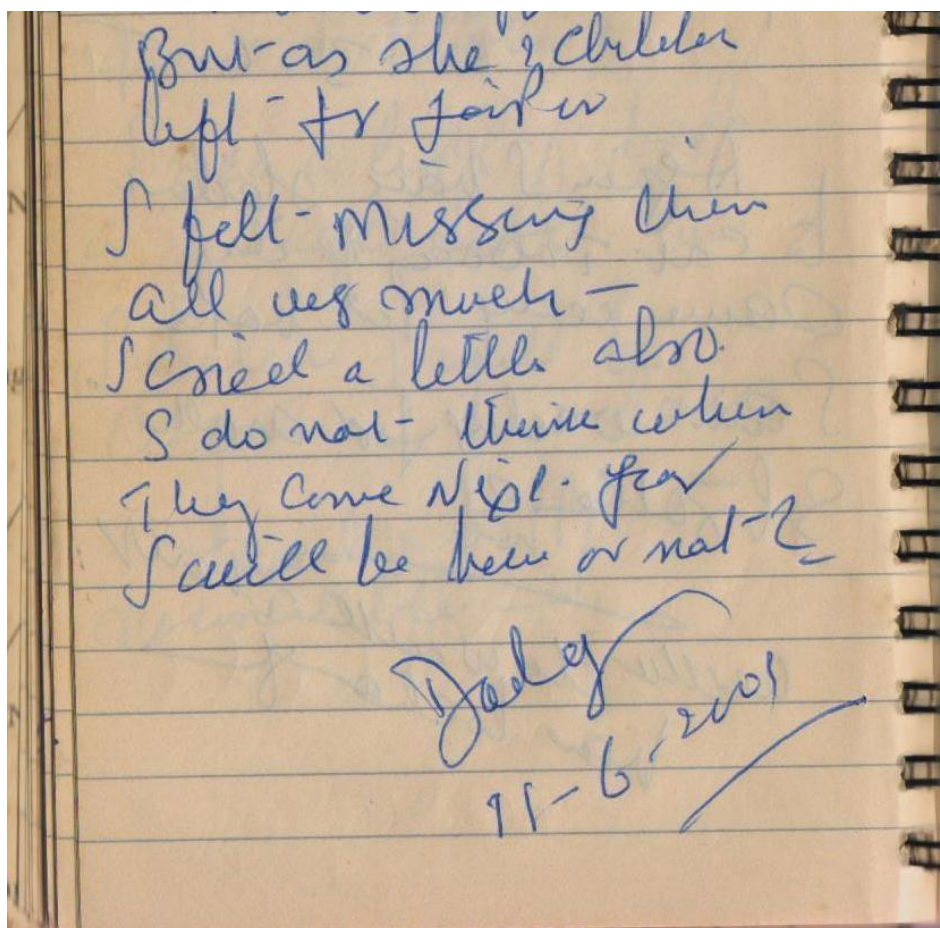 But - as she & children
left - for
I felt - missing them
all very much -
I cried a little also.
I do not - think when
They come Next. year
I will be here or not - ?
Dady
11-6-2001